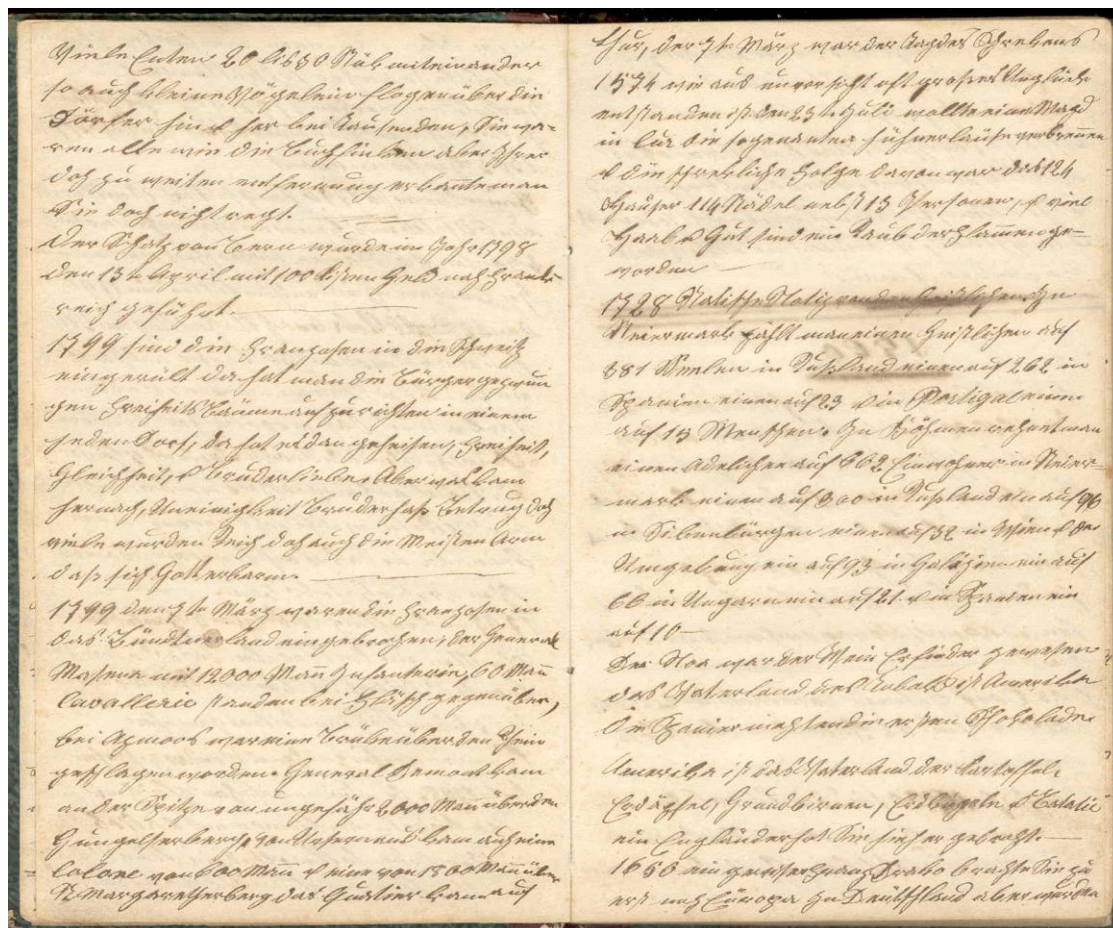 Viele Enten 20 bis 30 Stük miteinander
so auch kleine Vögelein flogen über die
Dörfer hin & her bei Tausenden, Sie wa-
ren alle wie die Buchfinken aber Ihrer
doch zu weiten entfernung erkante man
Sie doch nicht recht.
Der Schatz von Bern wurde im Jahr 1798
den 13t April mit 100 kisten Geld nach Frank-
reich geführt.
1799 sind die Franzosen in die Schweitz
eingerükt da hat man die Bürger gezwun
gen Freiheits Bäume auf zu richten in einem
jeden Dorf, da hat es dan geheisen, Freiheit,
Gleichheit, & Bruderliebe. Aber was kam
hernach, Uneinigkeit Bruderhass Betrug doch
viele wurden Reich doch auch die Meisten Arm
dass sich Gott erbarm.
1799 den 7te März waren die Franzosen in
das Bündtnerland eingebrochen, der General
Masena mit 12000 Mann Infanterie, 60 Mann
Cavallerie standen bei Fläsch gegenüber,
bei Azmoos war eine Brüke über den Rhein
geschlagen worden. General Demont kam
an der Spitze von ungefähr 2000 Mann über den
Gungelserberg, von kam auch eine
Colone von 600 Mann & eine von 1500 Mann über
St Margarethaberg das Quatier kam auf
Chur, der 7t März war der Tag des Schrekens
1574 wie aus unvorsicht oft grosses Unglück
entstanden ist den 23t Juli wollte eine Magd
in Cur die sogenanten hühnerläuse verbrennen
& die schrekliche Folge davon war das 124
Häuser 114 Städel nebst 13 Personen, & viel
Haab & Gut sind ein Raub der Flammen ge-
worden
1728 von den Geistlichen In
Steiermark zählt man einen Geistlichen auf
881 Seelen in Russland einen auf 262 in
Spanien einen auf 23 & in Portigal einen
auf 13 Menschen. In Böhmen rechnet man
einen Adelichen auf 662 Einwohner in Steier-
mark einen auf 300 in Russland ein auf 96
in Sibenbürgen einen auf 32 in Wien & der
Umgebung ein auf 93 in Galizien ein auf
66 in Ungarn ein auf 21. & in Spanien ein
auf 10
Der Noa war der Wein Erfinder gewesen
das Vaterland des Tabaks ist Amerika
Die Spanier machten die ersten Schokolade
Amerika ist das Vaterland der Kartoffel,
Erdäpfel, Grundbirnen, & Batatie
ein Engländer hat Sie hieher gebracht.
1650 ein gewisser Franz Drako brachte Sie zu
erst nach Europa In Deutschland aber wurden